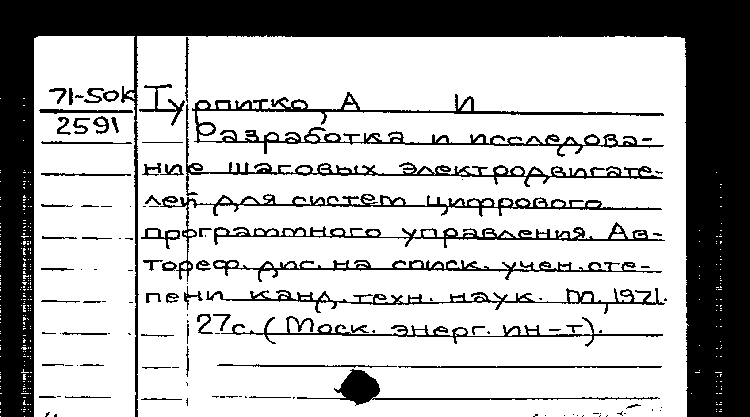 71-50к Турпитко, А И
2591 Разработка и исследова-
ние шаговых электродвигате-
лей для систем цифрового
программного управления. Ав-
тореф. дис. на списк. учен. сте-
пени канд. техн. наук. М., 1971.
27с. (Моск. энерг. ин-т).